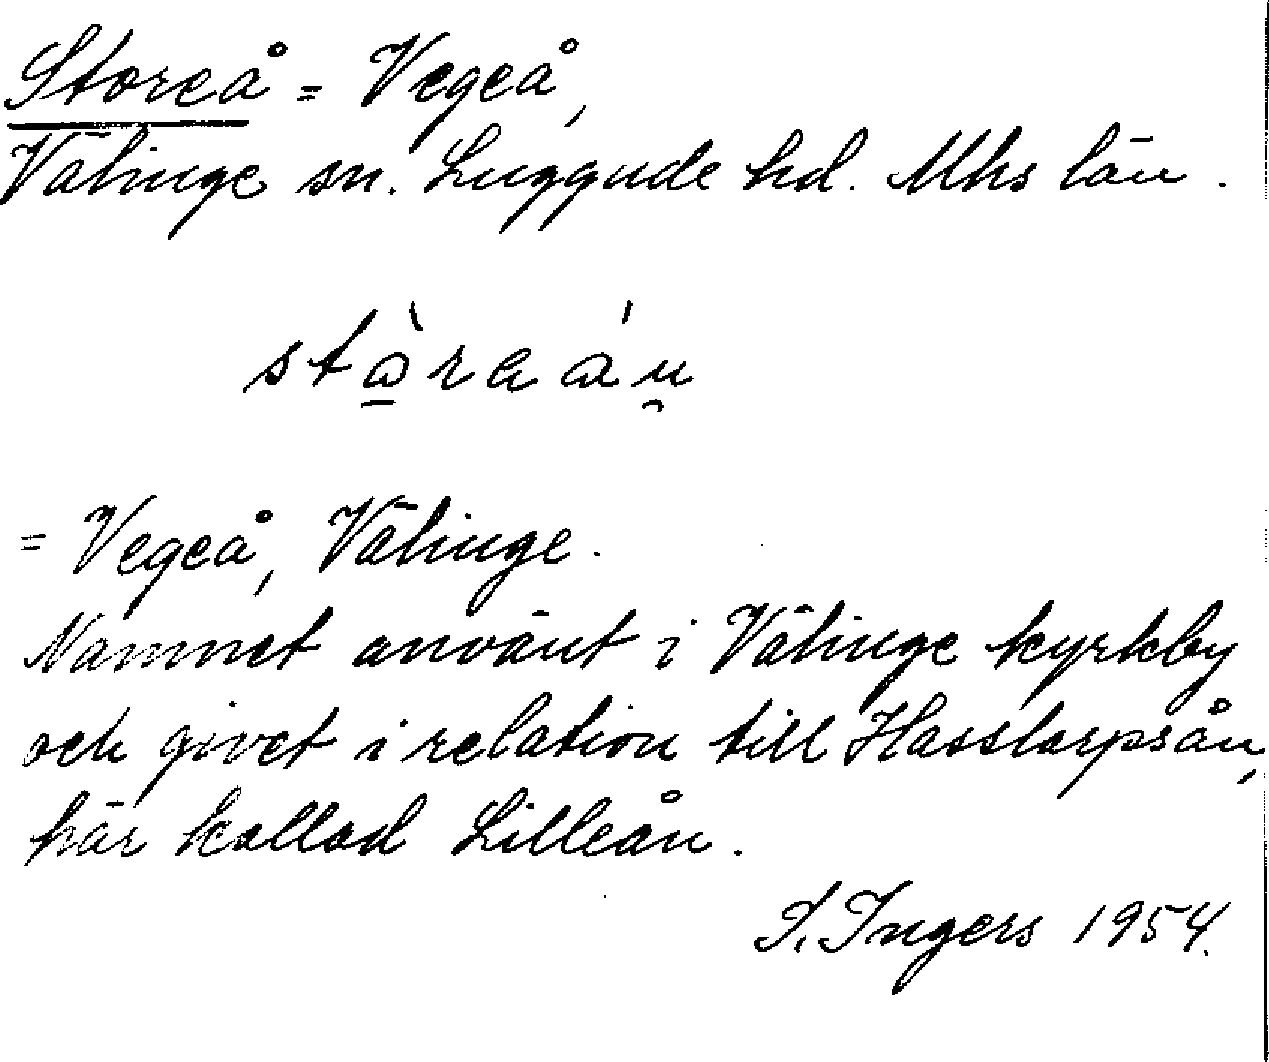 Storeå = Vegeå,
Välinge sn. Luggude hd. Mhs län.
= Vegeå, Välinge.
Namnet använt i Välinge kyrkby
och givet i relation till Hasslarpsån,
här kallad Lilleån.
I. Ingers 1954.